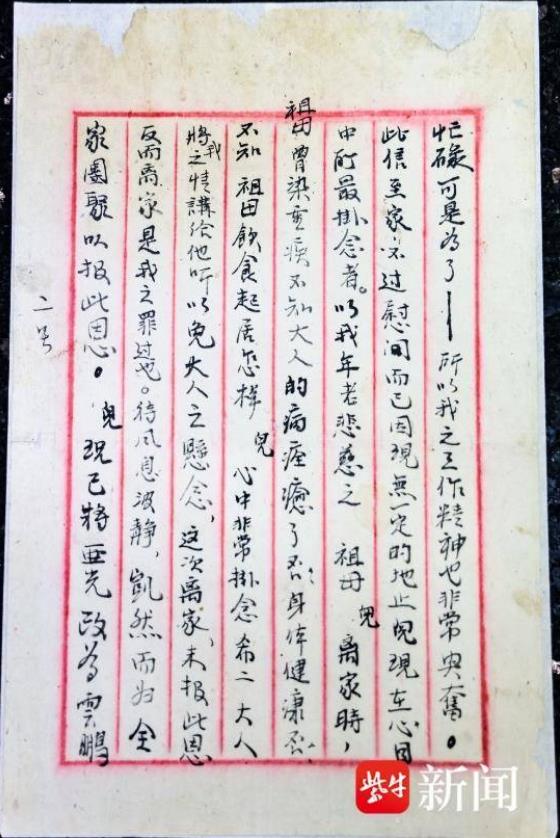 忙碌可是為了——所以我之工作精神也非常兴奮。
此信至家不过慰问而已因現無一定的地止兒現在心目
中所最掛念者。以我年老悲慈之 祖母 兒 离家時，
祖母曾染重疾不知大人的病痊癒了否，身体健康否，
不知 祖母飲食起居怎样 兒 心中非常掛念希二大人
將我之情講給他听以免大人之懸念，这次离家，未报此恩
反而离家是我之罪过也。待风息波静，凱然而归全
家團聚以报此恩。 兒現已將亜光改為雲鵬
二号
紫牛新闻